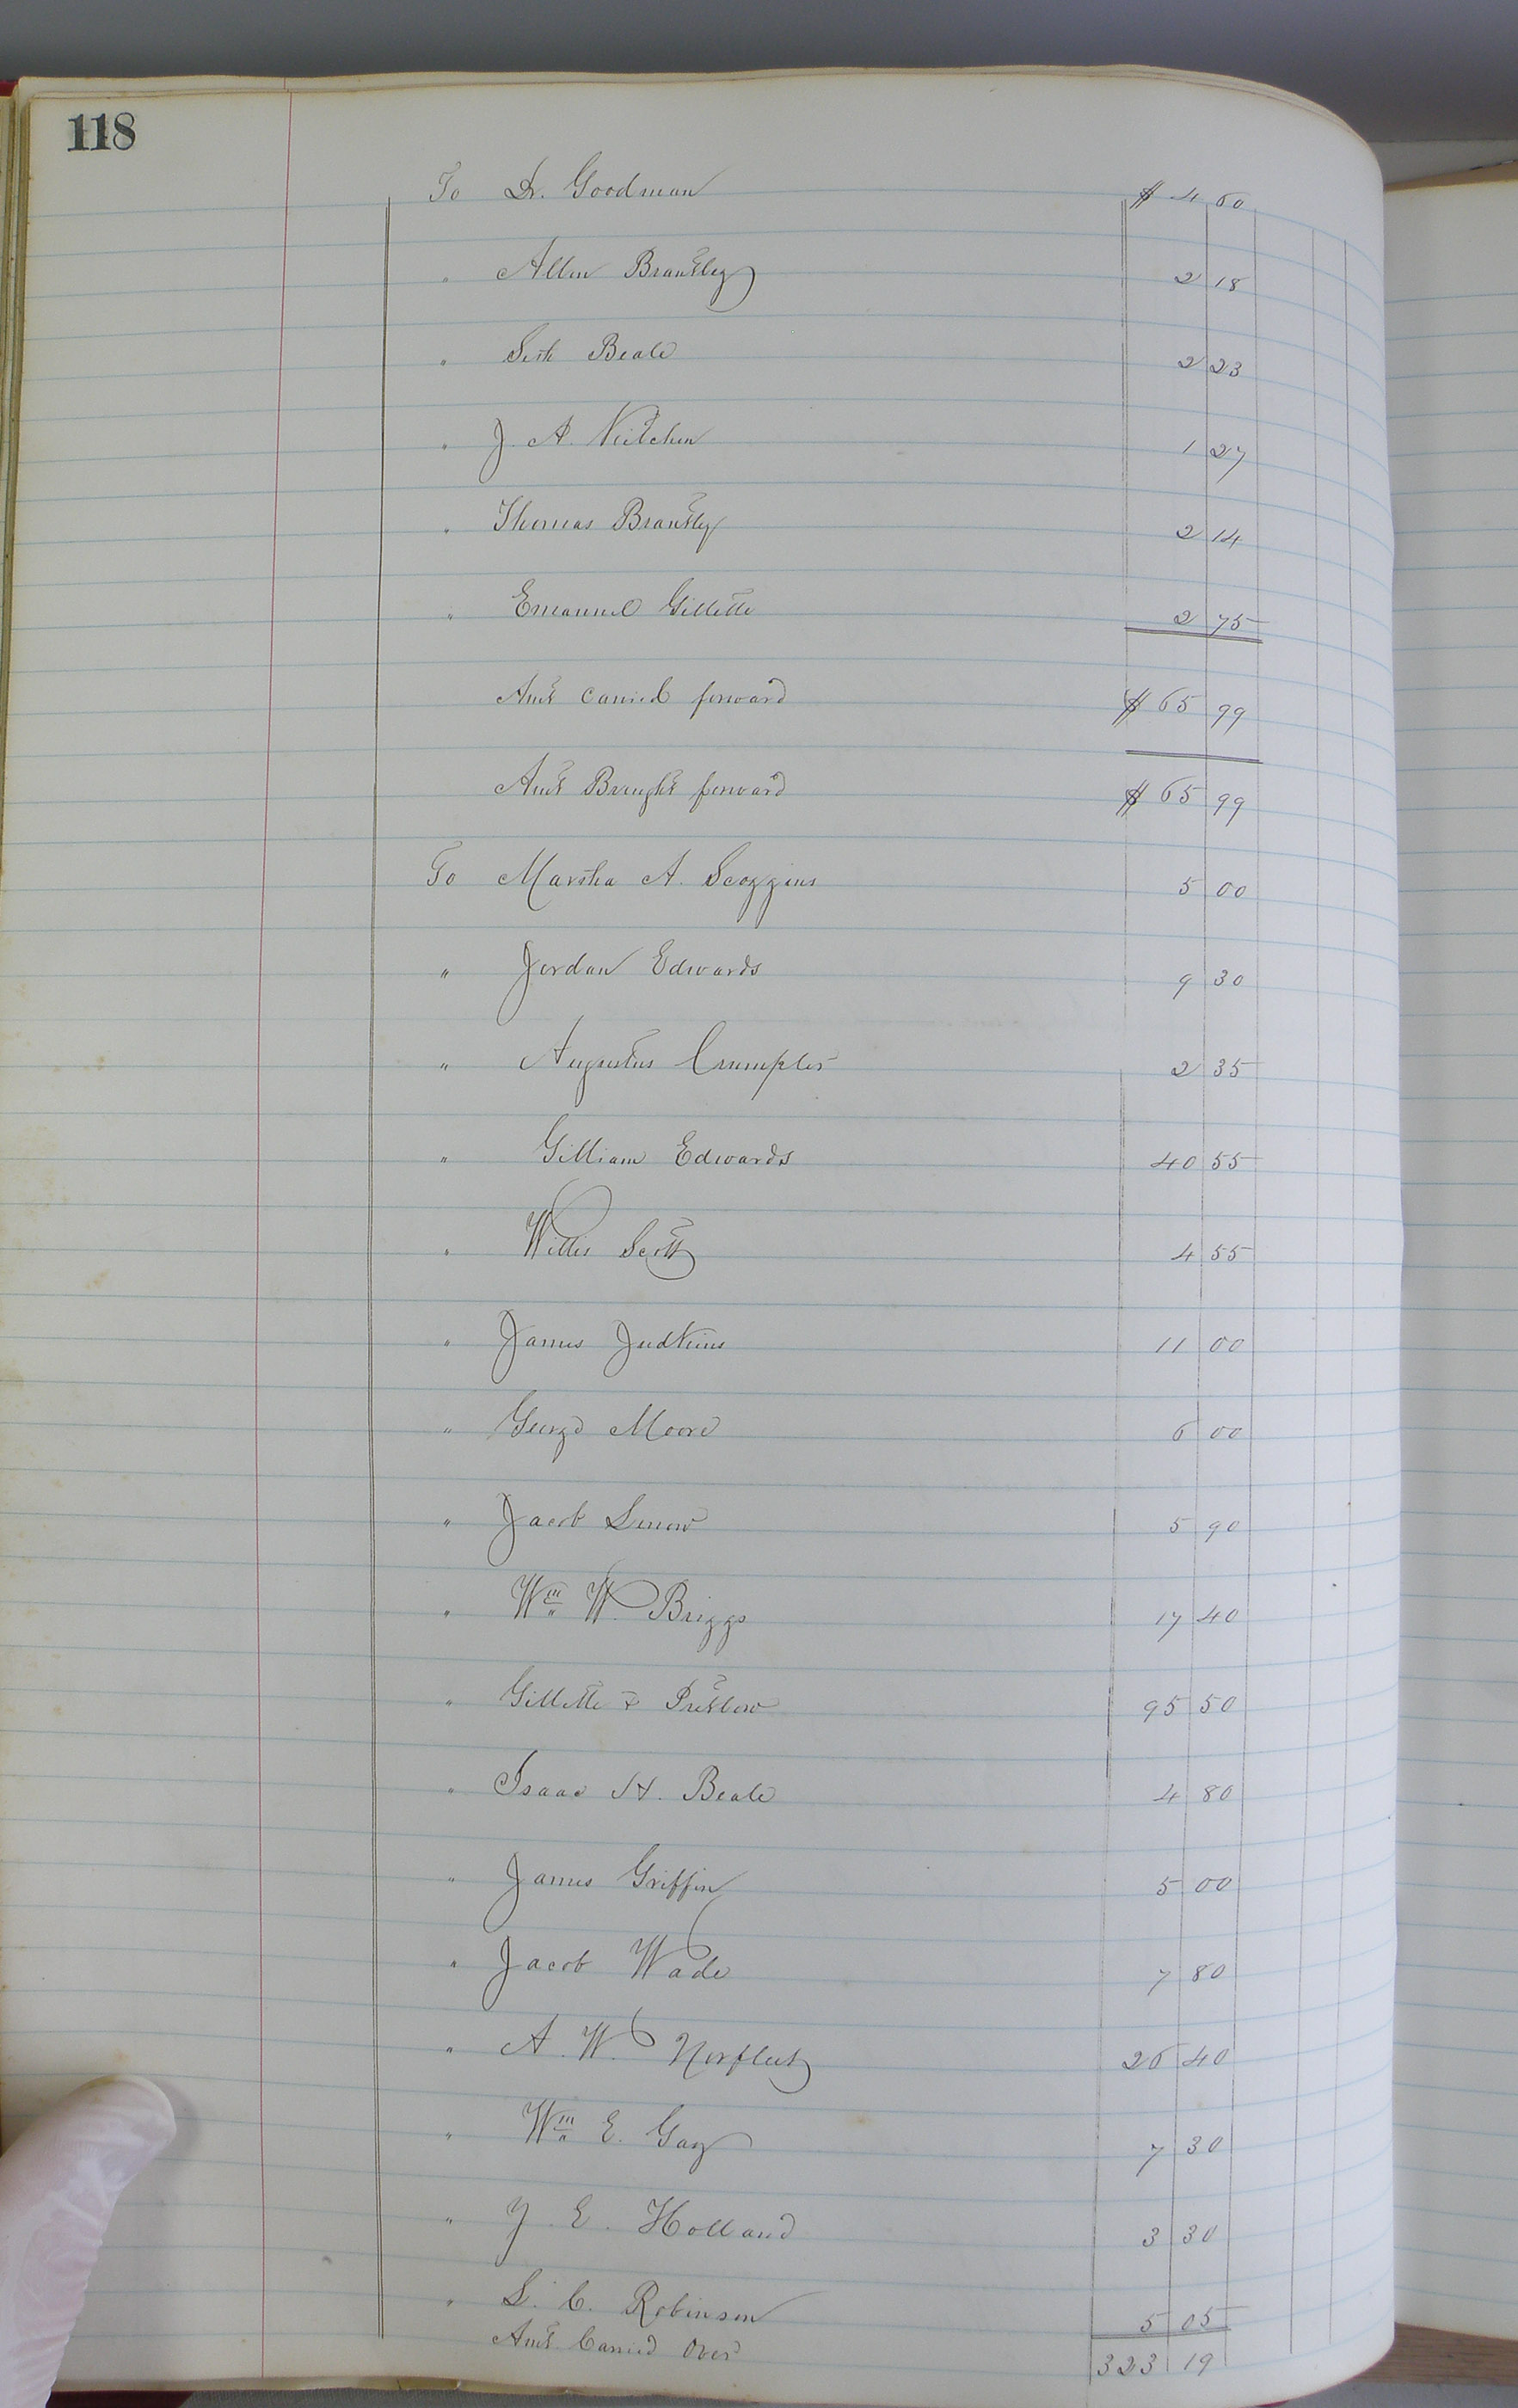 118
To Dr. Goodman $ 4 60
" Allen Brantley 2 18
" Seth Beale 2 23
" J. A. Kitchen 1 27
" Thomas Brantley 2 14
" Emanuel Gillette 2 75
Amt Carried forward $ 65 99
Amt Brought forward $ 65 99
To Martha A. Scoggins 5 00
" Jordan Edwards 9 30
" Augustus Crumpler 2 35
" Gilliam Edwards 40 55
" Willis Scott 4 55
" James Judkins 11 00
" George Moore 6 00
" Jacob Lenow 5 90
" Wm W. Briggs 17 40
" Gillette & Pretlow 95 50
" Isaac H. Beale 4 80
" James Griffin 5 00
" Jacob Wade 7 80
" A. W. Norfleet 26 40
" Wm E. Gay 7 30
" E. Holland 3 30
" C. Robinson 5 05
Amt Carried Over 323 19